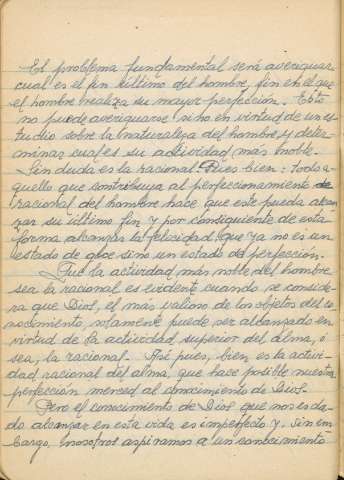 El problema fundamental será averiguar
cual es el fin último del hombre, fin en el que
el hombre realiza su mayor perfección. Esto
no puede averiguarse sino en virtud de un es-
tudio sobre la naturaleza del hombre y deter-
minar cual es su actividad más noble.
Sin duda es la racional. Pues bien: todo a-
quello que contribuya al perfeccionamiento de
racional del hombre hace que este pueda alcan-
zar su último fin y por consiguiente de esta
forma alcanzar la felicidad, que ya no es un
estado de goce sino un estado de perfección.
Que la actividad más noble del hombre
sea la racional es evidente cuando se conside-
ra que Dios, el más valioso de los objetos del co-
nocimiento, solamente puede ser alcanzado en
virtud de la actividad superior del alma, o
sea, la racional. Así pues, bien es la activi-
dad racional del alma, que hace posible nuestra
perfección merced al conocimiento de Dios.
Pero el conocimiento de Dios que nos es da-
do alcanzar en esta vida es imperfecto y, sin em-
bargo, nosotros aspiramos a un conocimiento